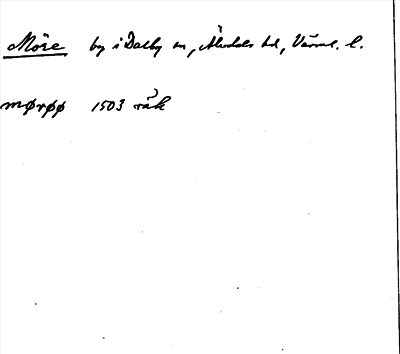 Möre by i Dalby sn, Älvdals hd, Värml. l.
mørøø 1503 räk